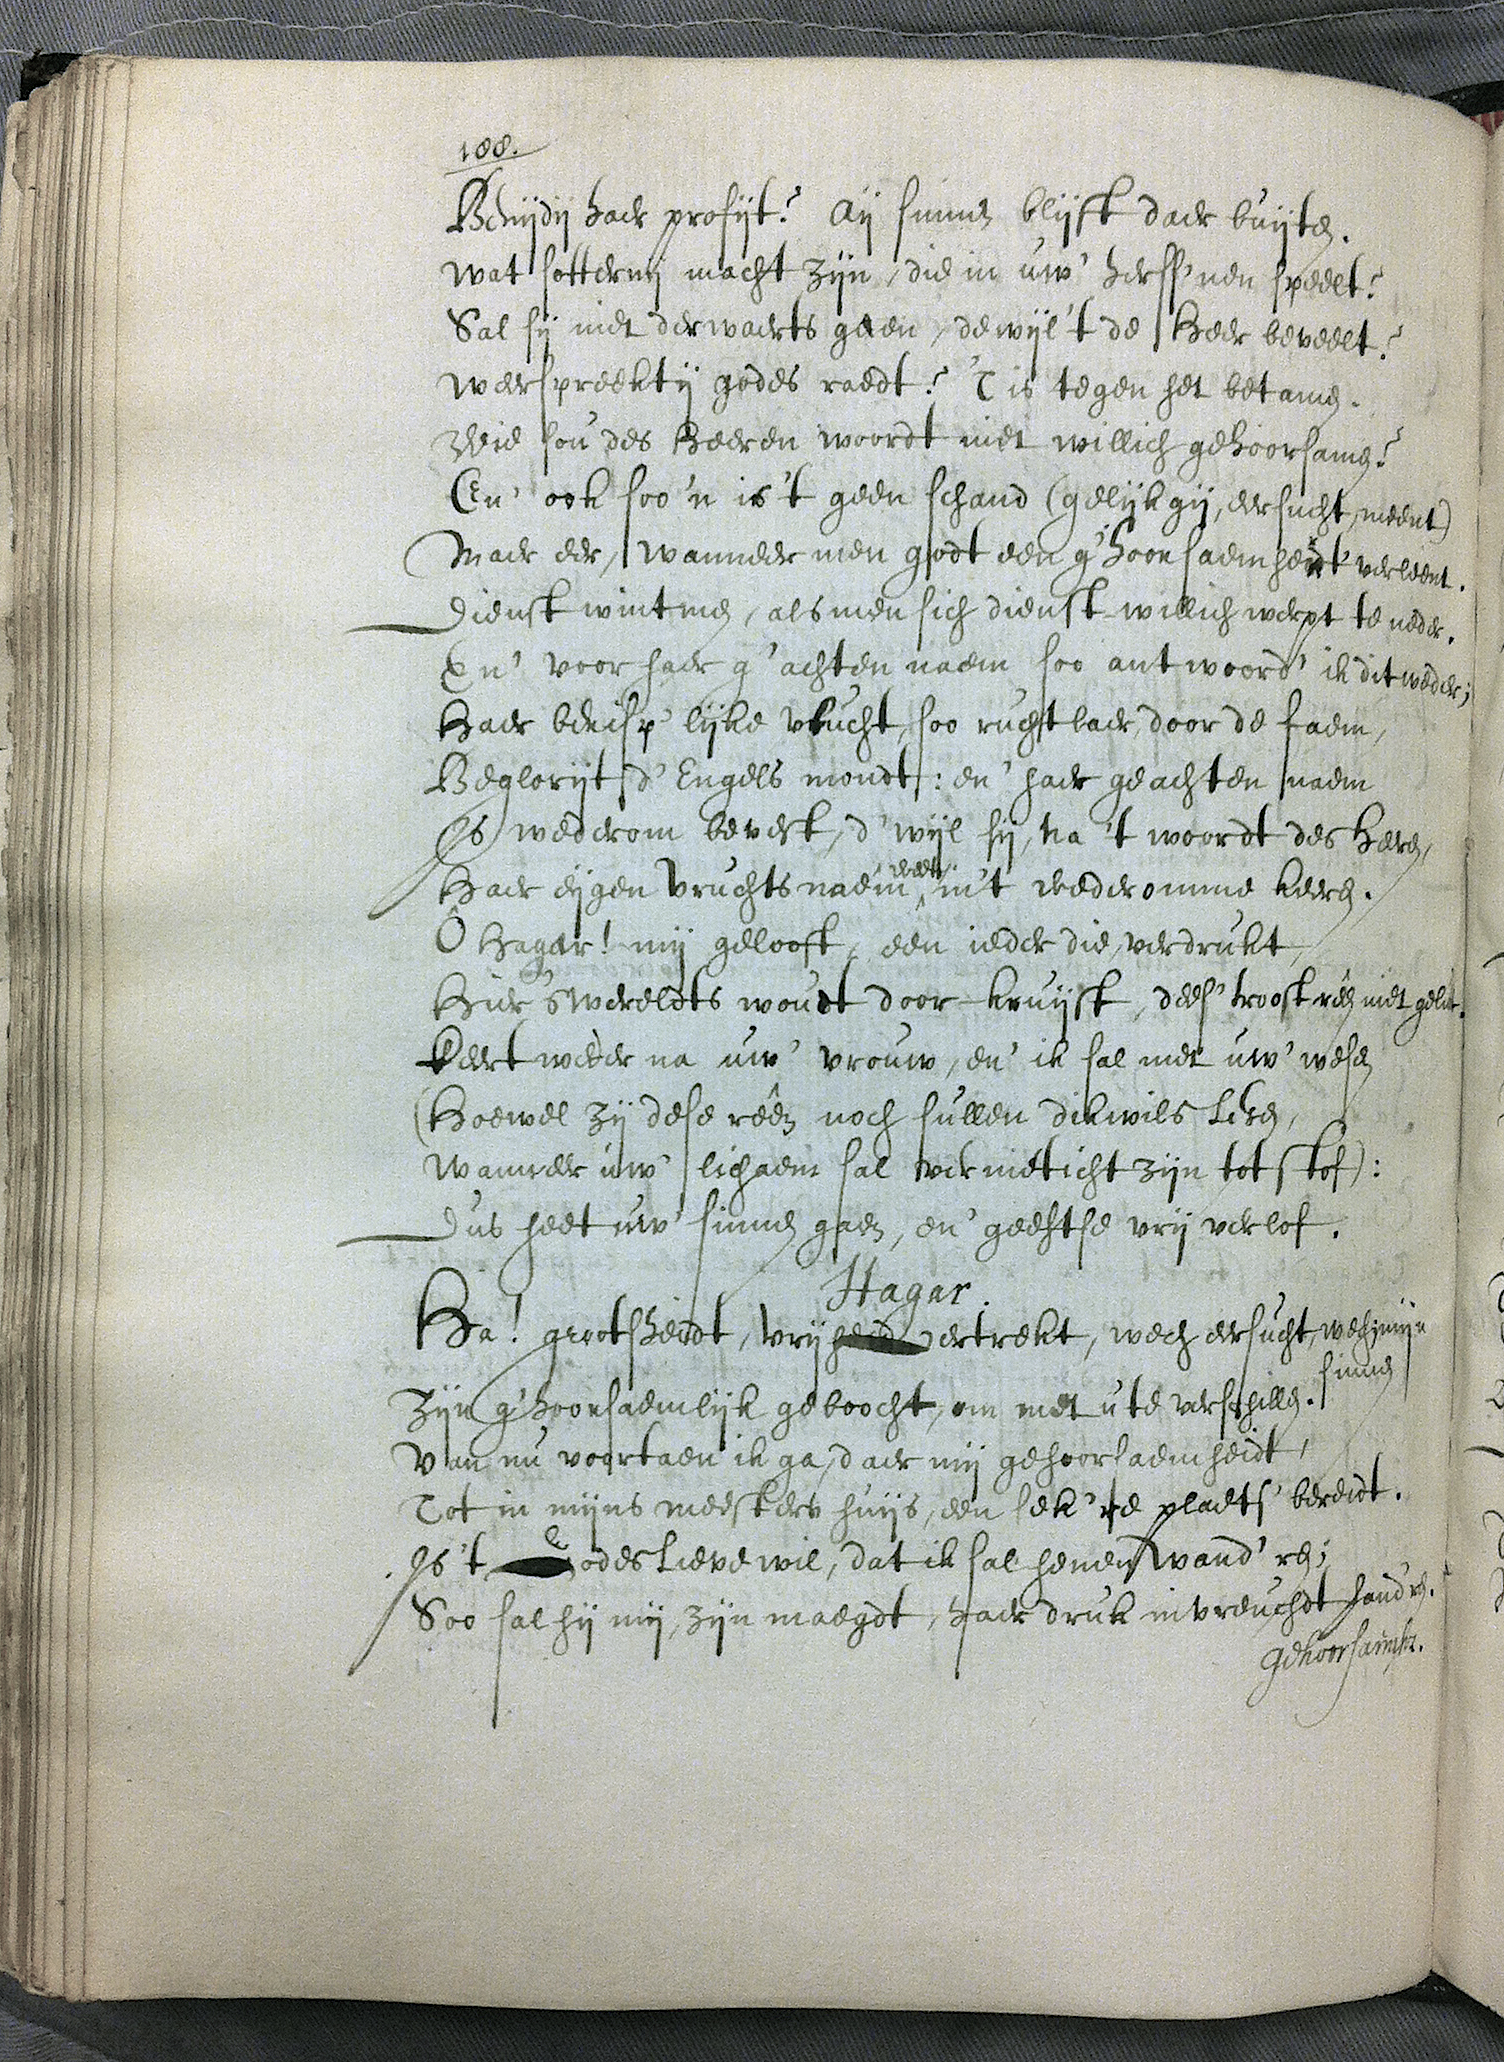 188.
Benijdij haer profijt? Aij sinnen blijft daer buijten.
Wat sotternij macht zijn, die in uw' herss'nen speelt?
Sal sij niet derwaerts gaen, dewijl 't de Heer beveelt?
Weerspreektij godes raedt? 'T is tegen het betamen.
Wie sou des Heeren woordt niet willich gehoorsamen?
En' ook soo 'n is 't geen schand (gelijk gij, eersucht, meent)
Maer eer, wanneer men godt een g'hoorsaemheidt verleent.
Dienst wint men, als men sich dienst-willich werpt te neder.
En' voor haer g'achten naem soo antwoord' ik dit weder;
Haer berisp'lijke vlucht, soo ruchtbaer, door de faem,
Beglorijt d' Engels mondt: en' haer geachten naem
Is wederom bevest, d'wijl sij, na 't woordt des Heeren,
Haer eijgen vruchts naem weet, in 't wederomme keeren.
Ô Hagar! mij gelooft, een ieder die, verdrukt,
Hier 's wereldts woudt door-kruijst, dees' troost-reen niet gelukt.
Keert weder na uw' vrouw, en' ik sal met uw' wesen
(Hoewel zij dese rêên noch sullen dikwils lesen,
Wanneer uw' lichaem sal vernieticht zijn tot stof):
Dus heet uw' sinnen gaen, en' geeftse vrij verlof.
Hagar.
Ha! grootsheidt, vrijheid vertrekt, wech eersucht, wech; mijn
sinnen
Zijn g'hoorsaemlijk geboocht, om met u te verschillen.
Van nu voortaen ik ga, daer mij gehoorsaemheidt,
Tot in mijns meesters huijs, een sek're plaets' bereidt.
Is 't Godes lieve wil, dat ik sal henen wand'ren;
Soo sal hij mij, zijn maegdt, haer druk in vreuchdt hand'ren.
Gehoorsaemht.